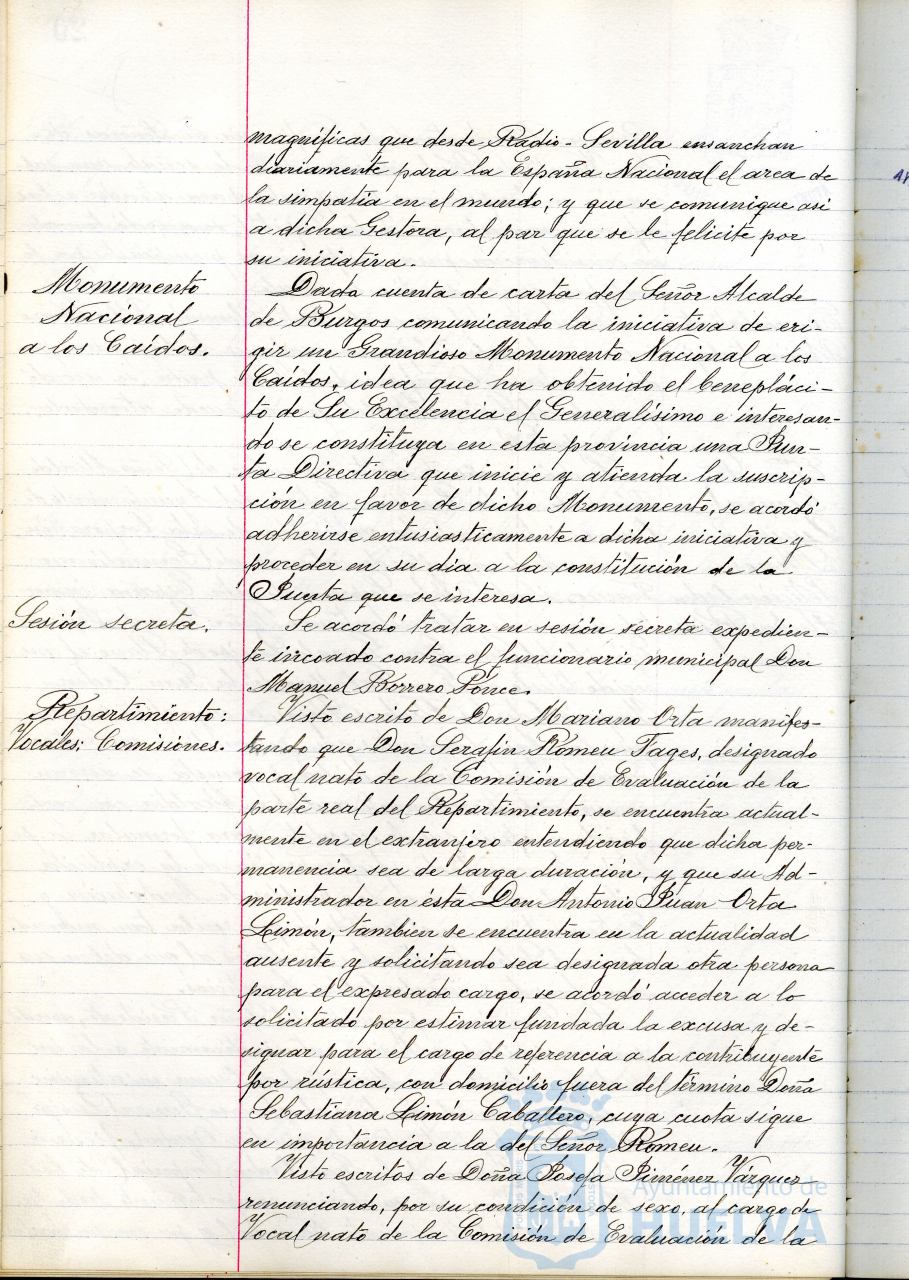 magníficas que desde Radio-Sevilla ensanchan
diariamente para la España Nacional el area de
la simpatía en el mundo; y que se comunique asi
a dicha Gestora, al par que se le felicite por
su iniciativa.
Monumento
Nacional
a los Caídos.
Dada cuenta de carta del Señor Alcalde
de Burgos comunicando la iniciativa de eri-
gir un Grandioso Monumento Nacional a los
Caídos, idea que ha obtenido el beneplaci-
to de Su Excelencia el Generalísimo e interesan-
do se constituya en esta provincia una Jun-
ta Directiva que inicie y atienda la suscrip-
ción en favor de dicho Monumento, se acordó
adherirse entusiasticamente a dicha iniciativa y
proceder en su dia a la constitución de la
Junta que se interesa.
Sesión secreta.
Se acordó tratar en sesión secreta expedien-
te incoado contra el funcionario municipal Don
Manuel Borrero Ponce.
Repartimiento:
Vocales: Comisiones.
Visto escrito de Don Mariano Orta manifes-
tando que Don Serafín Romeu Fages, designado
vocal nato de la Comisión de Evaluación de la
parte real del Repartimiento, se encuentra actual-
mente en el extranjero entendiendo que dicha per-
manencia sea de larga duración, y que su Ad-
ministrador en ésta Don Antonio Juan Orta
Limón, tambien se encuentra en la actualidad
ausente y solicitando sea designada otra persona
para el expresado cargo, se acordó acceder a lo
solicitado por estimar fundada la excusa y de-
signar para el cargo de referencia a la contribuyente
por rústica, con domicilio fuera del término Doña
Sebastiana Limón Caballero, cuya cuota sigue
en importancia a la del Señor Romeu.
Visto escritos de Doña Josefa Jiménez Vázquez
renunciando, por su condición de sexo, al cargo de
Vocal nato de la Comisión de Evaluación de la
Ayuntamiento de
HUELVA